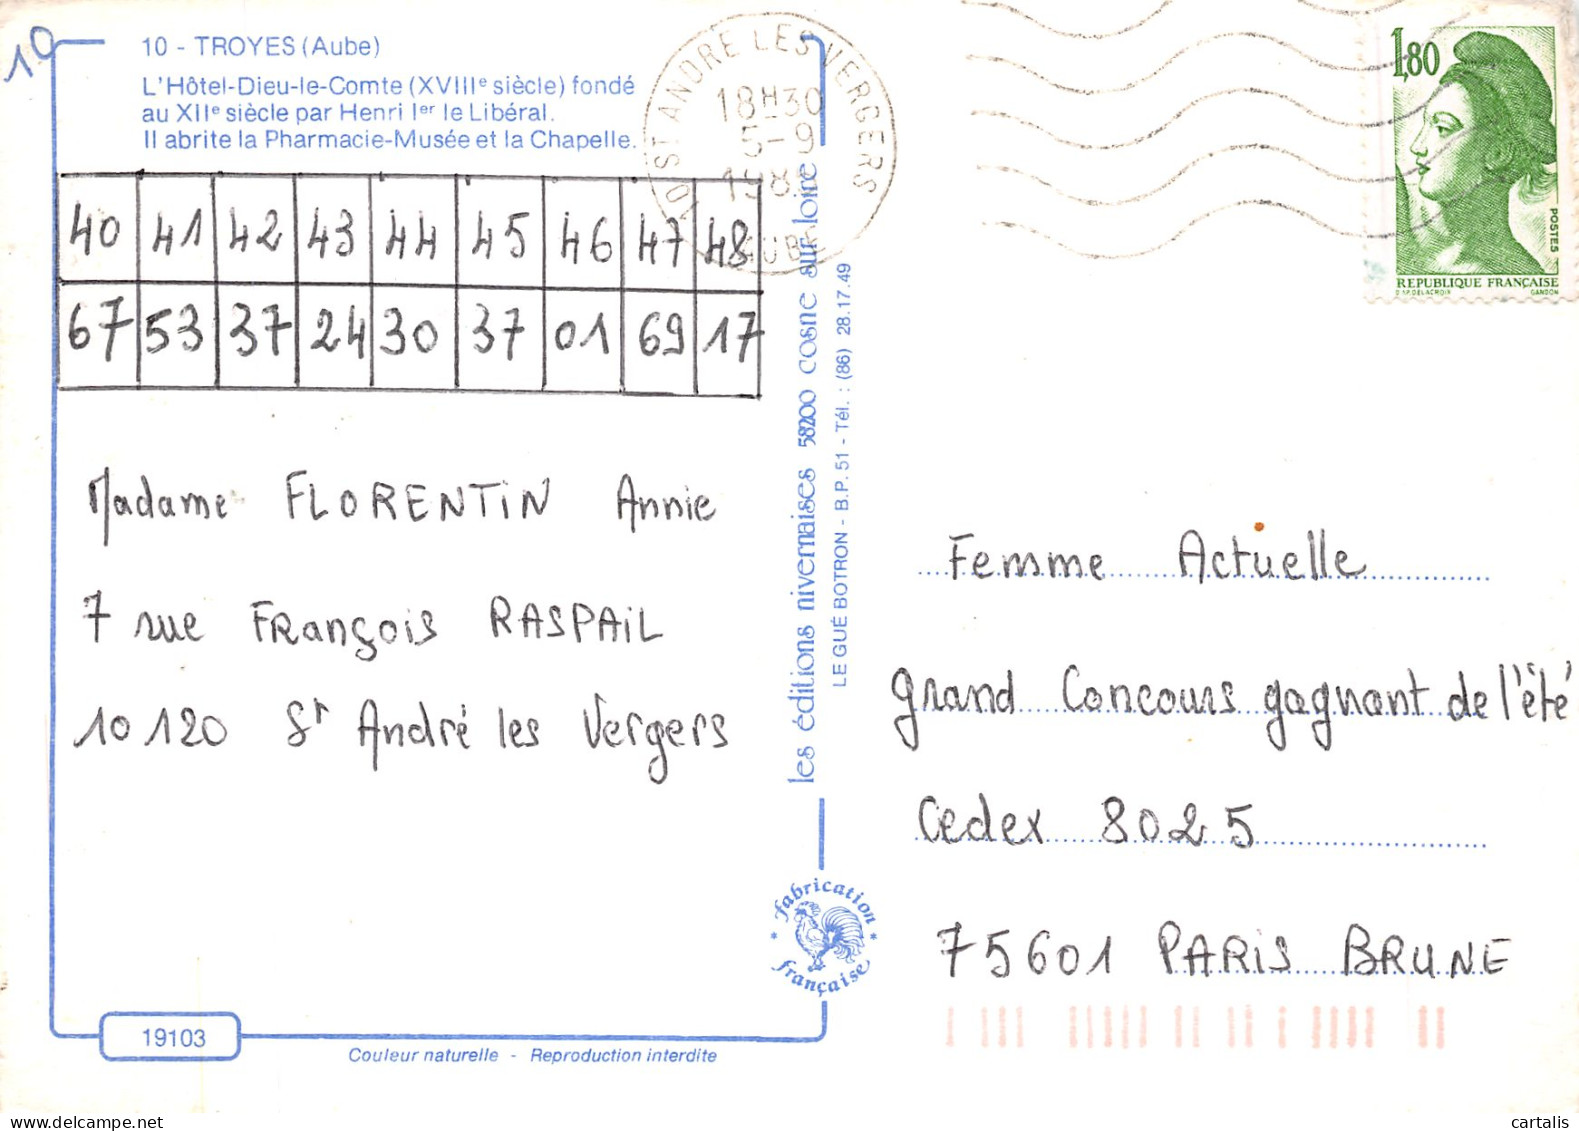 10
10 - TROYES (Aube)
L'Hôtel-Dieu-le-Comte (XVIIIe siècle) fondé
au XIIe siècle par Henri Ier le Libéral.
Il abrite la Pharmacie-Musée et la Chapelle.
40 41 42 43 44 45 46 47 48
67 53 37 24 30 37 01 69 17
Madame FLORENTIN Annie
7 rue François RASPAIL
10120 St André les Vergers
19103
Couleur naturelle - Reproduction interdite
10 ST ANDRE LES VERGERS
18H30
5-9
AUBE
les éditions nivernaises 58200 cosne sur loire
LE GUÉ BOTRON - B.P. 51 - Tél. : (86) 28.17.49
fabrication
française
1,80
POSTES
REPUBLIQUE FRANÇAISE
D'AP. DELACROIX GANDON
Femme Actuelle
grand Concours gagnant de l'été
Cedex 8025
75601 PARIS BRUNE
cartalis